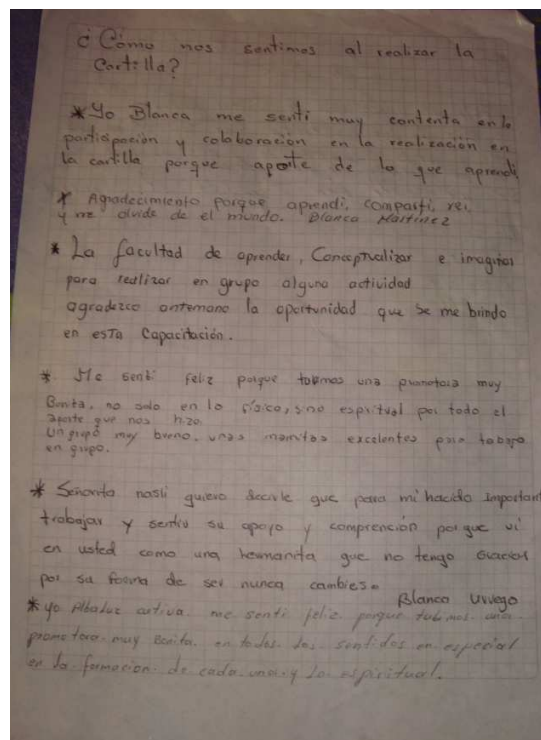 ¿Cómo nos sentimos al realizar la
Cartilla?
*Yo Blanca me senti muy contenta en la
participación y colaboración en la realización en
la cartilla porque aporte de lo que aprendi
* Agradecimiento porque aprendi, comparti, rei
y me olvide de el mundo. Blanca Martinez
* La facultad de aprender, Conceptualizar e imaginar
para realizar en grupo alguna actividad
agradezco antemano la oportunidad que se me brindo
en esTa Capacitación.
* Me senti feliz porque tubimos una promotora muy
Bonita, no solo en lo físico, sino espiritual por todo el
aporte que nos hizo.
Un grupo muy bueno. unas mamitas excelentes para trabajo
en grupo.
* Señorita nasli quiero decirle que para mi hacido Important
trabajar y sentir su apoyo y comprención porque vi
en usted como una hermanita que no tengo Gracias
por su forma de ser nunca cambies.
Blanca Urrego
* yo Albaluz me senti feliz porque tubimos una
promotora muy Bonita en todos los sentidos en especial
en la formacion de cada una y lo espiritual.